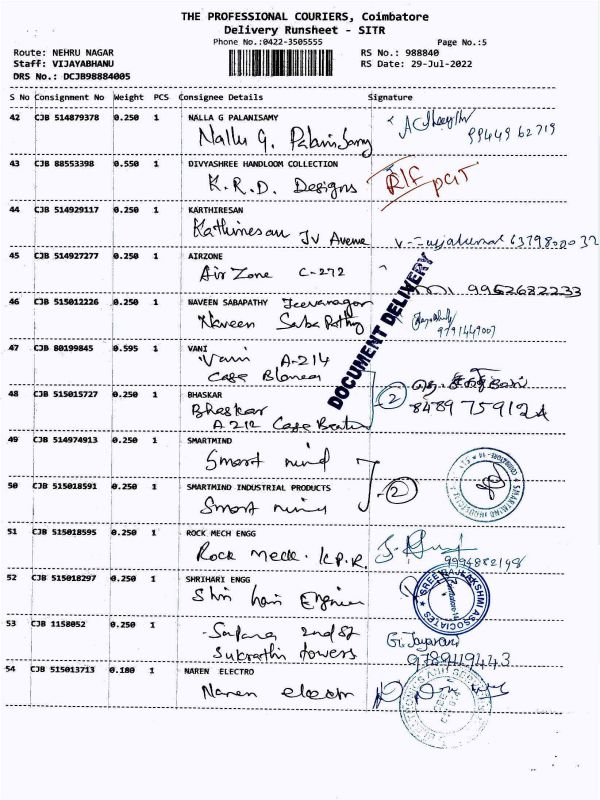 THE PROFESSIONAL COURIERS, Coimbatore
Delivery Runsheet - SITR
Phone No.:0422-3505555 Page No.:5
Route: NEHRU NAGAR RS No.: 988840
Staff: VIJAYABHANU RS Date: 29-Jul-2022
DRS No.: DCJB98884005
S No Consignment No Weight PCS Consignee Details Signature
42 CJB 514879378 0.250 1 NALLA G PALANISAMY
Nallu G. Palanisamy 99449 62719
43 CJB 88553398 0.550 1 DIVYASHREE HANDLOOM COLLECTION
K.R.D. Designs R/F
44 CJB 514929117 0.250 1 KARTHIRESAN
Kathiresan JV Avenue
45 CJB 514927277 0.250 1 AIRZONE
Air Zone C-272 9952682233
DOCUMENT DELIVERY
46 CJB 515012226 0.250 1 NAVEEN SABAPATHY Jeevanagar
Naveen Saba Pathy 9791449007
47 CJB 80199845 0.595 1 VANI
Vani A-214
48 CJB 515015727 0.250 1 BHASKAR
Bhaskar 2
A 212 84897 75912
49 CJB 514974913 0.250 1 SMARTMIND
Smart mind
50 CJB 515018591 0.250 1 SMARTMIND INDUSTRIAL PRODUCTS
Smart mind 2
51 CJB 515018595 0.250 1 ROCK MECH ENGG
Rock Mech. K.P.R. 9994882148
52 CJB 515018297 0.250 1 SHRIHARI ENGG
Shri hari Engineer
SREE RAJALAKSHMI ASSOCIATES
53 CJB 1158052 0.250 1 2nd st
towers G. Jayarani
9789419443
54 CJB 515013713 0.180 1 NAREN ELECTRO
Naren electro